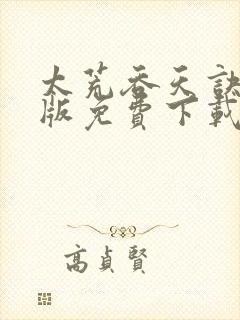 太荒吞天訣
版免費下載
高貞賢